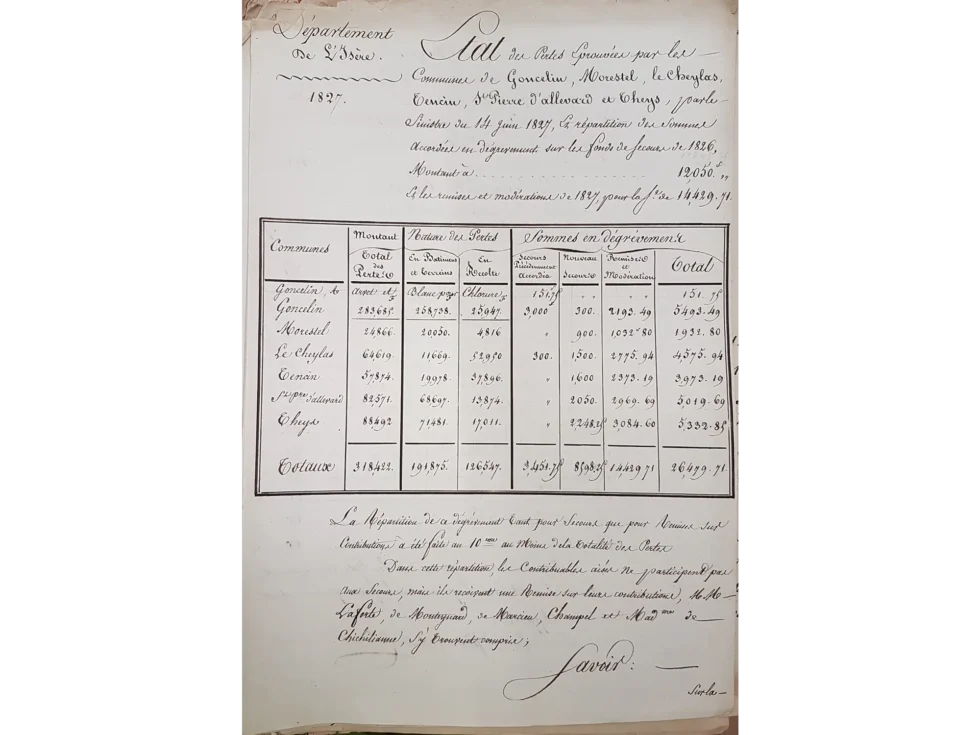 Département
De L'Isère.
1827.
Etat des Pertes Eprouvées par les
Communes de Goncelin, Morestel, le Cheylas,
Tencin, St Pierre d'allevard et Theys, par le
Sinistre du 14 Juin 1827, Et répartition des Sommes
Accordées en dégrèvement sur les fonds de Secours de 1826,
Montant à . . . . . . . . . . . . . . . . 12,050.f "
Et les remises et modérations de 1827, pour la Se. de 14,429.71.
Communes | Montant Total des Pertes | Nature des Pertes | Sommes en dégrèvement
En Batimens et Terrains | En Récolte | Secours Précédemment Accordés | Nouveau Secours | Remises et Modération | Total
Goncelin, à Arvet et Blanc pour Clôture 151.75 " " " " 151.75
Goncelin 283685. 258,738. 25,947. 3,000 300. 2193.49 5493.49
Morestel 24,866. 20,050. 4,816 " 900. 1,032.80 1932.80
Le Cheylas 64,619. 11,669. 52,950 300. 1,500. 2775.94 4,575.94
Tencin 57,874. 19,978. 37,896. " 1,600 2373.19 3,973.19
St pre d'allevard 82,571. 68697. 13,874. " 2050. 2969.69 5,019.69
Theys 88,492 71481. 17,011. " 2,248.25 3,084.60 5,332.85
Totaux 318422. 191,875. 126,547. 3,451.75 8,598.25 14,429 71 26,479.71.
La Répartition de ce dégrèvement tant pour Secours que pour Remises sur
Contributions à été faite au 10eme au Moins de la totalité des Pertes
Dans cette répartition, les Contribuables aisés ne participent pas
aux Secours, mais ils reçoivent une Remise sur leurs contributions, M.M
Laforte, de Monteynard, de Marcieu, Champel et Madame de
Chichilianne, s'y trouvent compris;
Savoir:
Sur la